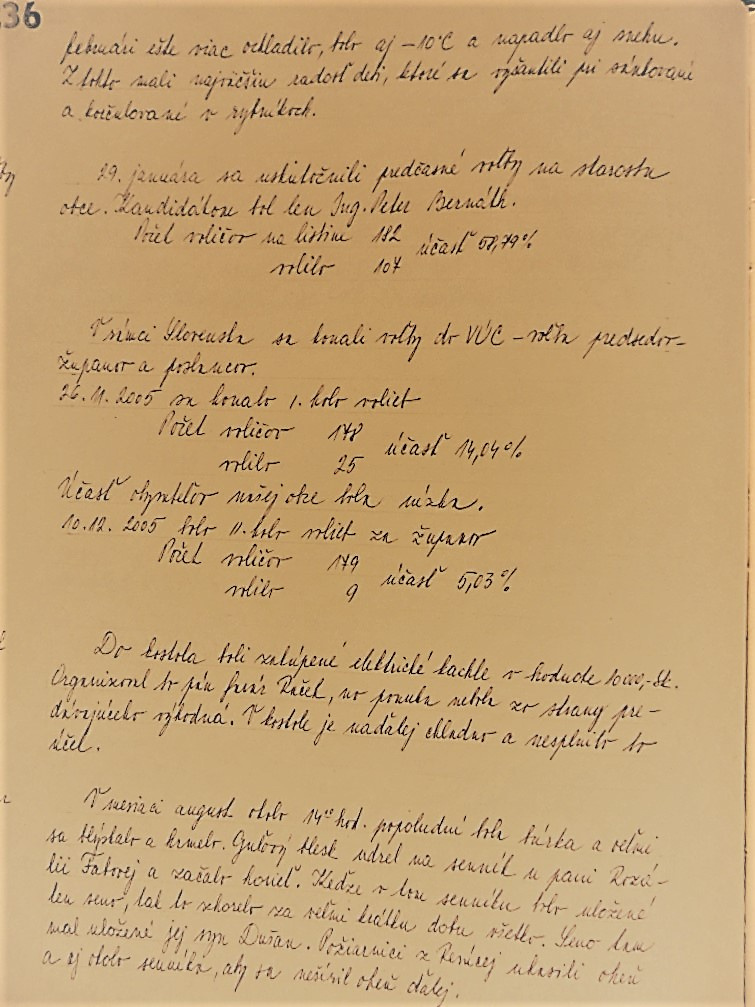 36
februári ešte viac ochladilo, bolo aj -10°C a napadlo aj snehu.
Z tohto mali najväčšiu radosť deti, ktoré sa vyšantili pri sánkované
a korčulované v rybníkoch.
29. januára sa uskutočnili predčasné voľby na starostu
obce. Kandidátom bol len Ing. Peter Bernáth.
Počet voličov na listine 182 účasť 58,79%
volilo 107
V rámci Slovenska sa konali voľby do VÚC - voľba predsedov-
županov a poslancov.
26.11.2005 sa konalo I. kolo volieb
Počet voličov 178 účasť 14,04%
volilo 25
Účasť obyvateľov našej obce bola nízka.
10.12.2005 bolo II. kolo volieb za županov
Počet voličov 179 účasť 5,03%
volilo 9
Do kostola boli zakúpené elektrické kachle v hodnote 10000,-Sk.
Organizoval to pán no ponuka nebola zo strany pre-
dávajúceho výhodná. V kostole je naďalej chladno a nesplnilo to
účel.
V mesiaci august okolo 14°° hod. popoludní bola búrka a veľmi
sa blýskalo a hrmelo. Guľový blesk udrel na senník u pani Rozá-
lii Faborej a začalo horieť. Keďže v tom senníku bolo uložené
len seno, tak to zhorelo za veľmi krátku dobu všetko. Seno tam
mal uložené jej syn Dušan. Požiarnici z uhasili oheň
a aj okolo senníka, aby sa nešíril oheň ďalej.